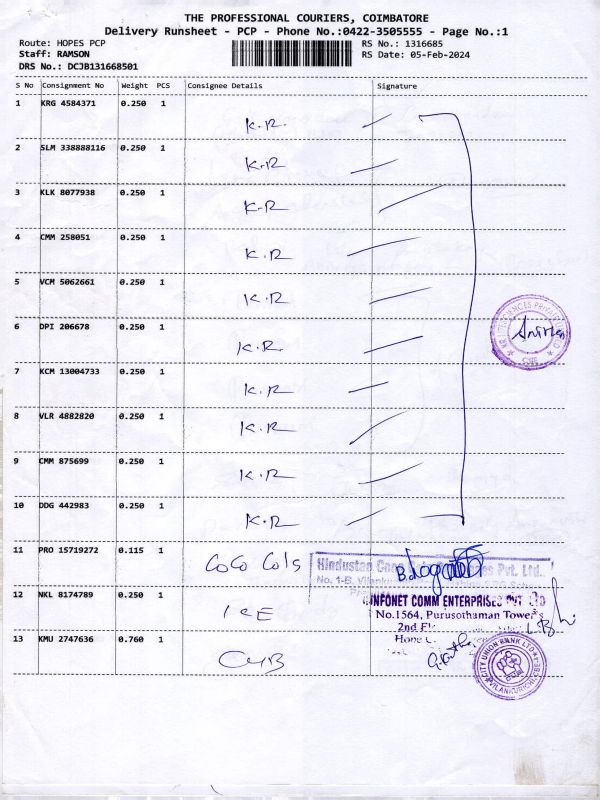 THE PROFESSIONAL COURIERS, COIMBATORE
Delivery Runsheet - PCP - Phone No.:0422-3505555 - Page No.:1
Route: HOPES PCP
RS No.: 1316685
Staff: RAMSON
RS Date: 05-Feb-2024
DRS No.: DCJB131668501
S No Consignment No Weight PCS Consignee Details Signature
1 KRG 4584371 0.250 1 K.R.
2 SLM 338888116 0.250 1 K.R
3 KLK 8077938 0.250 1 K.R
4 CMM 258051 0.250 1 K.R
5 VCM 5062661 0.250 1 K.R
6 DPI 206678 0.250 1 K.R
7 KCM 13004733 0.250 1 K.R
8 VLR 4882820 0.250 1 K.R
9 CMM 875699 0.250 1 K.R
10 DDG 442983 0.250 1 K.R
11 PRO 15719272 0.115 1
Hindustan Pvt. Ltd.
No. 1-B,
12 NKL 8174789 0.250 1
INFONET COMM ENTERPRISES PVT
No.1564, Purusothaman Towers
2nd
13 KMU 2747636 0.760 1 CUB
CITY UNION BANK LTD
VILANKURICHI